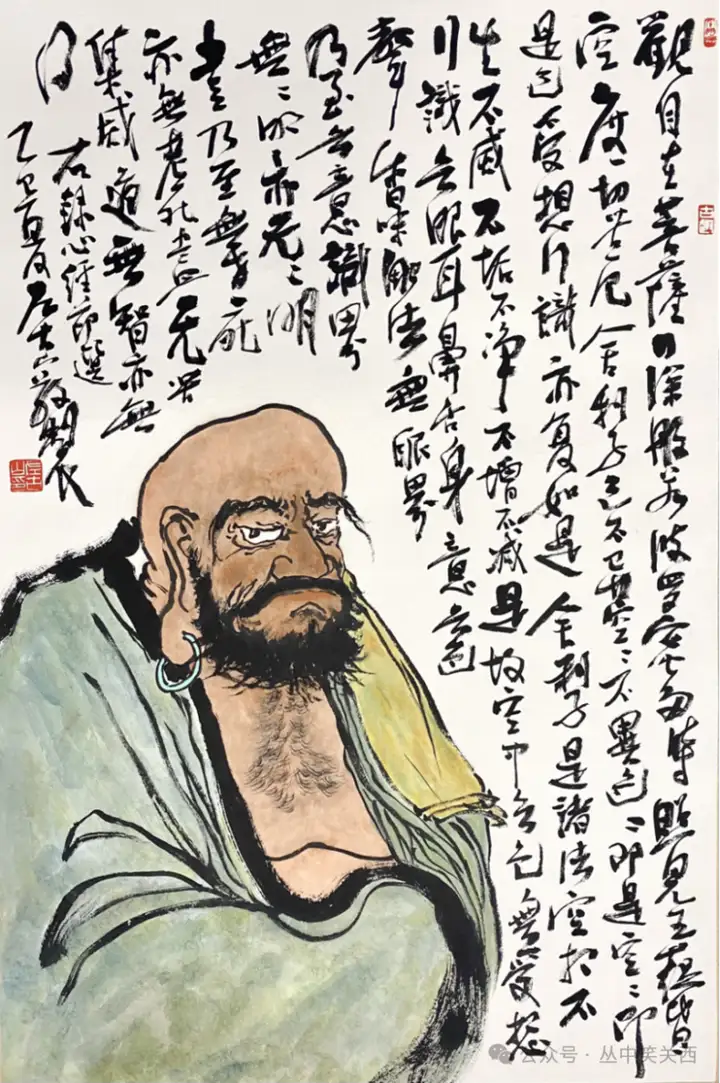 觀自在菩薩行深般若波羅蜜多時照見五蘊皆
空度一切苦厄舍利子色不異空〻不異色〻即是空〻即
是色受想行識亦复如是舍利子是諸法空相不
生不滅不垢不净不增不减是故空中無色無受想
行識無眼耳鼻舌身意無色
聲香味觸法無眼界
乃至無意識界
無〻明亦无〻明
盡乃至無老死
亦無老死盡无苦
集滅道無智亦無
得
右録心經節選
乙巳夏月
公众号 · 丛中笑关西